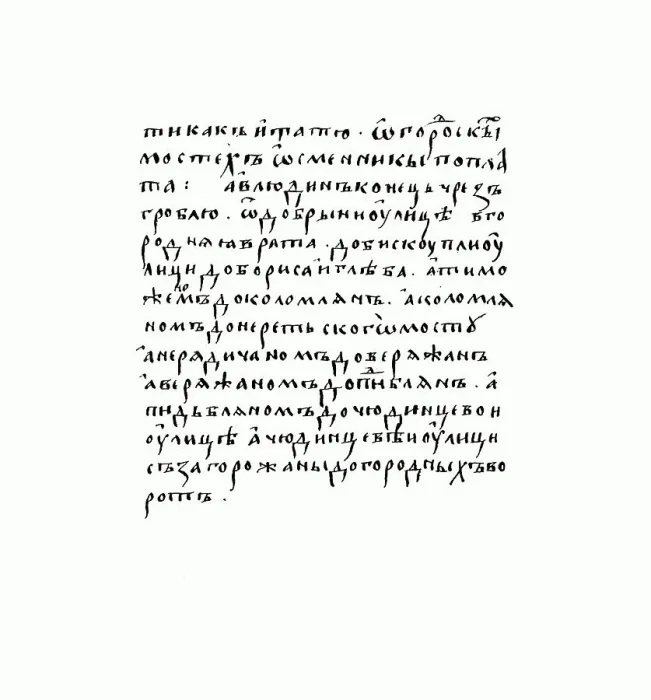 тикакъ и татю · ѿ горⷣоскъі
мостехъ ѿсменникы попла
та : а въ людинъ конець чрезъ
гроблю · ѿ добрыни оулицѣ в го
родняю врата · до бискоупли оу
лици до бориса и глѣба · а тимо
жемъ до коломлянъ · а коломля
номъ до неретьскогѡ мостꙋ
а нерядичаномъ до вережанъ
а вережаномъ до пидьблянъ · а
пидьбляномъ до чюдинцевои
оулицѣ а чюдинцевѣи оулици
съ загорожаны до городныхъ во
ротъ ·